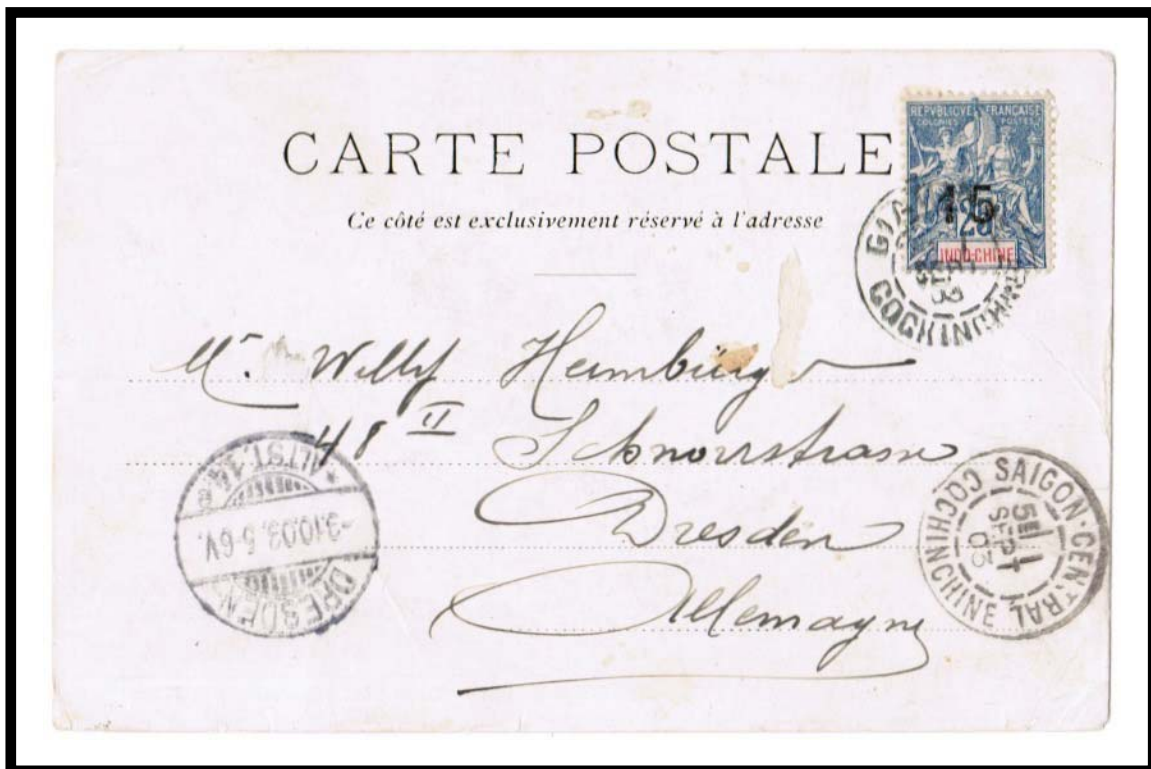 CARTE POSTALE
Ce côté est exclusivement réservé à l'adresse
REPVBLIQVE FRANÇAISE
COLONIES POSTES
15
25
INDO-CHINE
COCHINCHINE
03
Mr. Willy Heimbürger
48 II Schnorrstrasse
Dresden
Allemagne
DRESDEN ALTST. 14
-3.10.03. 5-6V.
SAIGON-CENTRAL
5E 1
SEPT
03
COCHINCHINE